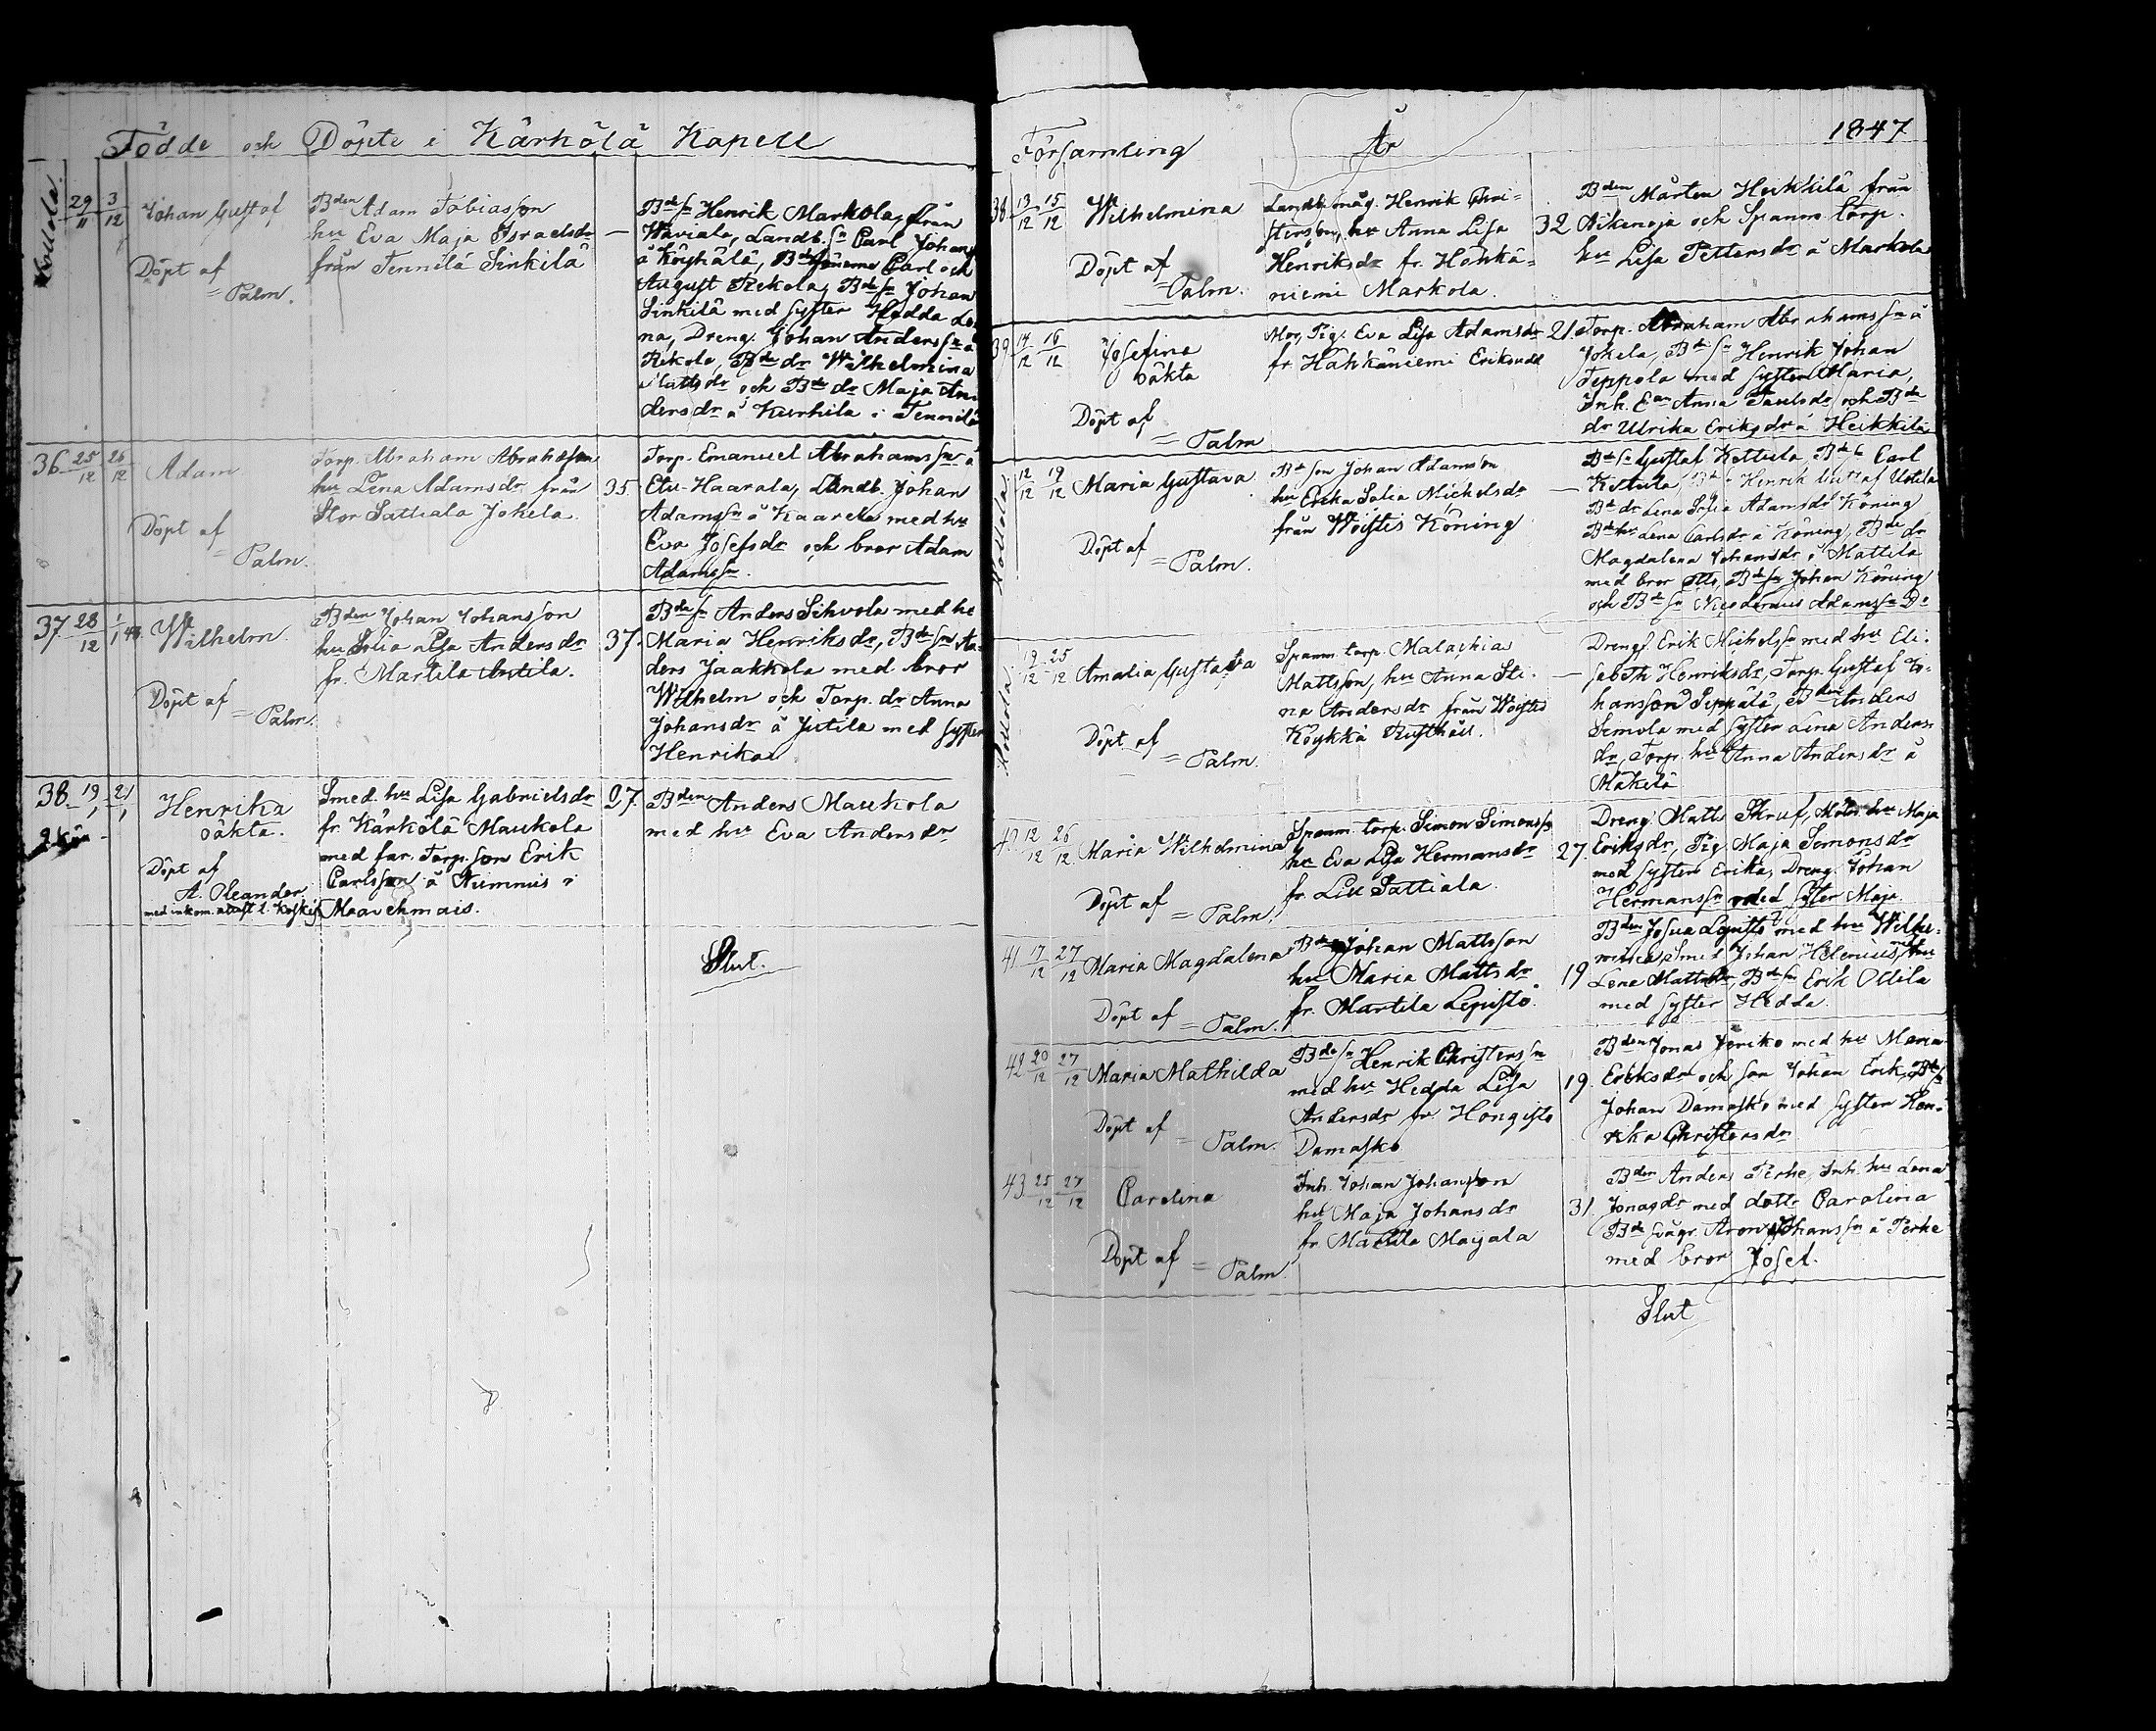 Födde och Döpte i Kärkölä Kapell
29/11 3/12 Johan Gustaf
Döpt af
= Palm.
Bden Adam Tobiasson
hu Eva Maja Israelsdr
från Tennilä Sinkilä
—
Bdesn Henrik Markola, från
Wäviala, Landb. sn Carl Johan
å Köyhälä, Bdesönerne Carl och
August Rekola, Bdesn Johan
Sinkilä med syster Hedda Le
na, Dreng. Johan Anderssn å
Rekola, Bde dr Wilhelmina
Mattsdr och Bde dr Maja An
dersdr å Kurhila i Tennilä
36 25/12 26/12 Adam
Döpt af
= Palm.
Torp. Abraham Abrahamson
hu Lena Adamsdr från
Stor Sattiala Jokela.
35.
Torp. Emanuel Abrahamssn å
Etu-Haarala, Landb. Johan
Adamssn å Kaarela med hu
Eva Josefsdr och bror Adam
Adamssn.
37 28/12 1/1 48. Wilhelm.
Döpt af
= Palm.
Bden Johan Johansson
hu Sofia Lisa Andersdr
fr. Martila Antila.
37.
Bdesn Anders Sihvola med hu
Maria Henriksdr, Bdesn An-
ders Jaakkola med bror
Wilhelm och Torp. dr Anna
Johansdr å Jutila med syster
Henrika
38 19/1 21/1 Henrika
oäkta.
Döpt af
A. Oleander
med inkom. attest f. Koskis
Smed. hu Lisa Gabrielsdr
fr Kärkölä Maukola
med far. Torp. son Erik
Carlsson å Nummis i
Maavehmais.
27.
Bden Anders Maukola
med hu Eva Andersdr
Slut.
Församling År 1847
38 13/12 15/12 Wilhelmina
Döpt af
= Palm.
Landb. måg. Henrik Chri-
stersson, hu Anna Lisa
Henriksdr fr. Hähkä-
niemi Markola.
32
Bden Mårten Heikkilä från
Oikenoja och Spanm. torp.
hu Lisa Pettersdr å Markola
39 14/12 16/12 Josefina
oäkta
Döpt af
= Palm
Mor, Pig. Eva Lisa Adamsdr
fr Hähkäniemi
21.
Torp. Abraham Abrahamssn å
Jokela, Bdesn Henrik Johan
Teppola med syster Maria,
Inh. Ean Anna Paulsdr och Bde
dr Ulrika Eriksdr å Heikkilä
12/12 19/12 Maria Gustava
Döpt af
= Palm.
Bdeson Johan Adamson
hu Erika Sofia Michelsdr
från Woistis Köning
—
Bdesn Gustaf Kettula Bdesn Carl
Kettula, Bdesn Henrik Gustaf Uotila
Bde dr Lena Sofia Adamsdr Köning
Bde hu Lena Carlsdr å Köning, Bde dr
Magdalena Johansdr å Mattila
med bror Otto, Bdesn Johan Köning
och Bdesn Nicodemus Adamssn Do
19/12 25/12 Amalia Gustava
Döpt af
= Palm.
Spanm. torp. Malachias
Mattsson, hu Anna Sti-
na Andersdr från Woistis
Köykkä Rusthåll.
—
Drengf. Erik Michelssn med hu Eli-
sabeth Henriksdr, Torp. Gustaf Jo-
hansson Seppälä, Bden Anders
Simola med syster Lena Anders
dr, Torp. hu Anna Andersdr å
Mäkelä
40 12/12 26/12 Maria Wilhelmina
Döpt af
= Palm.
Spanm. torp. Simon Simonssn
hu Eva Lisa Hermansdr
fr. Liu Sattiala.
27.
Dreng Matts Skruf, hu Maja
Eriksdr, Pig. Maja Simonsdr
med syster Erika, Dreng. Johan
Hermanssn med syster Maja.
41 17/12 27/12 Maria Magdalena
Döpt af
= Palm.
Bden Johan Mattsson
hu Maria Mattsdr
fr. Martila Lepistö.
19
Bden Josua Lepistö med hu Wilhel-
mina, Smed Johan Helenius med hu
Lena Mattsdr, Bdesn Erik Ollila
med syster Hedda.
42 20/12 27/12 Maria Mathilda
Döpt af
= Palm.
Bdesn Henrik Christerssn
med hu Hedda Lisa
Andersdr fr. Hongisto
Damasko
19.
Bden Jonas Jeriko med hu Maria
Eriksdr och son Johan Erik, Bdesn
Johan Damasko med syster Hen-
rika Christersdr
43 25/12 27/12 Carolina
Döpt af
= Palm.
Inh. Johan Johansson
hu Maja Johansdr
fr Martila Maijala
31.
Bden Anders Perhe, Inh. hu Lena
Jonasdr med dottr Carolina
Bde svågr. Aron Johanssn å Perhe
med bror Josef.
Slut